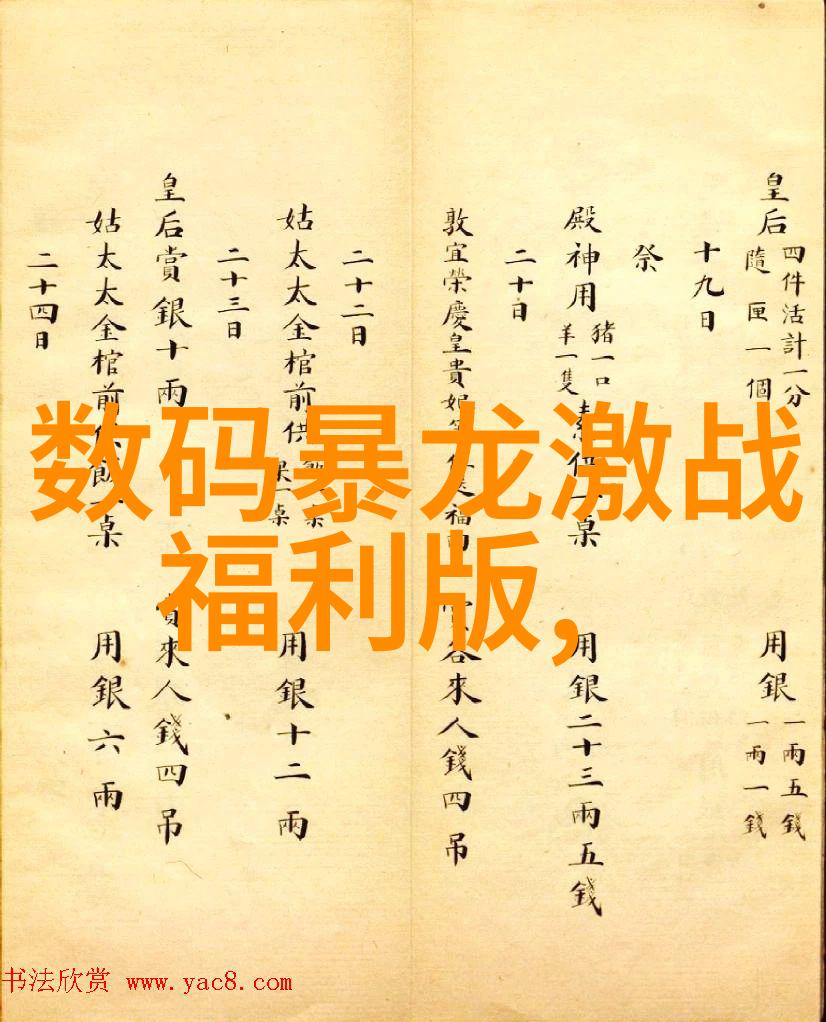 皇后 四件活計一分 隨匣一個 用銀 一兩五錢 一兩一錢
十九日
祭
殿神用 猪一口 羊一隻 素供一桌 用銀二十三兩五錢
二十日
敦宜榮慶皇貴妃 福 來人錢四吊
二十二日
姑太太金棺前供 桌 用銀十二兩
二十三日
皇后賞銀十兩 賞來人錢四吊
姑太太金棺前供飯一桌 用銀六兩
二十四日
数码暴龙激战
福利版,
书法欣赏 www.yac8.com